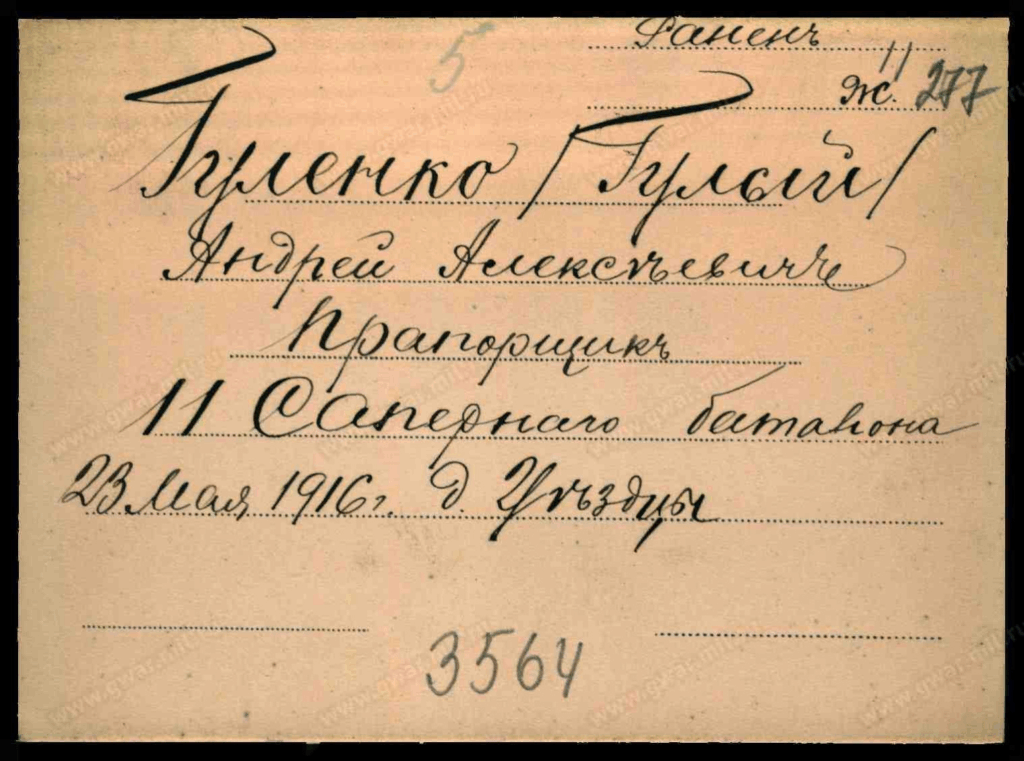 Раненъ
5
11
Ж. 277
Гуленко / Гулый /
Андрей Алексѣевичъ
Прапорщикъ
11 Сапернаго баталіона
23 Мая 1916 г. д. Уѣздцы
3564